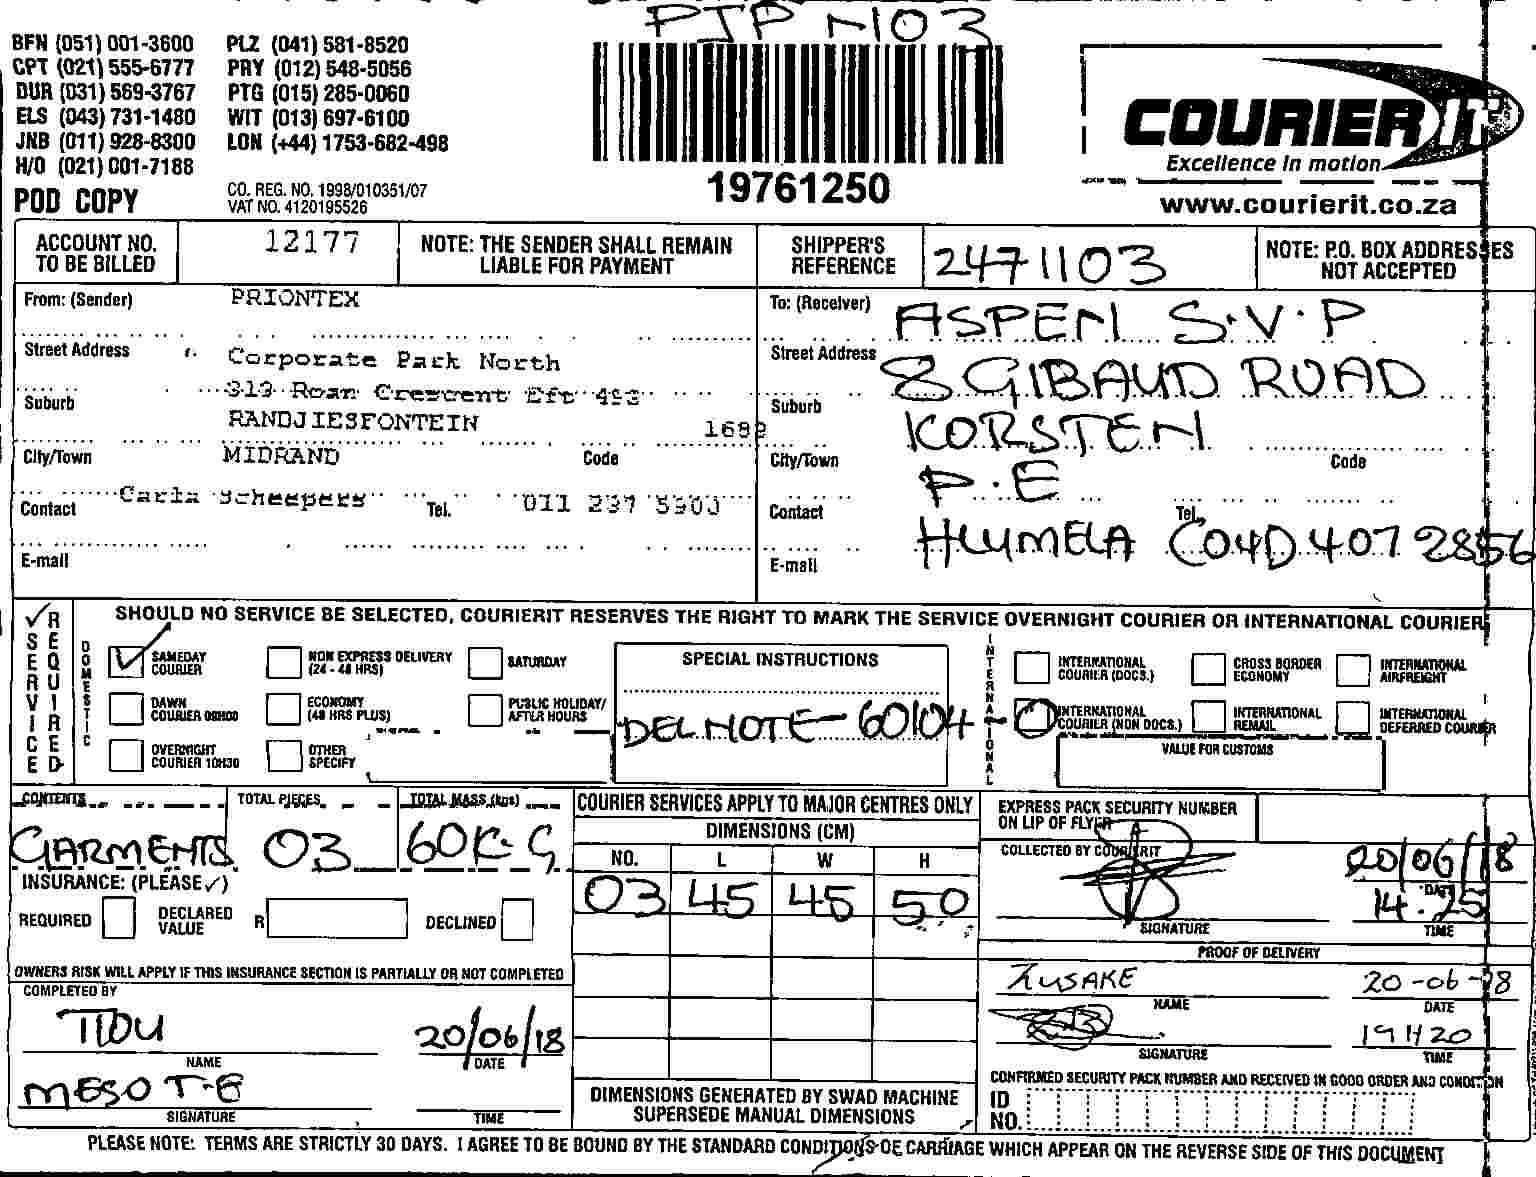 PJP N103
BFN (051) 001-3600 PLZ (041) 581-8520
CPT (021) 555-6777 PRY (012) 548-5056
DUR (031) 569-3767 PTG (015) 285-0060
ELS (043) 731-1480 WIT (013) 697-6100
JNB (011) 928-8300 LON (+44) 1753-682-498
H/O (021) 001-7188
POD COPY
CO. REG. NO. 1998/010351/07
VAT NO. 4120195526
19761250
COURIER IT
Excellence in motion
www.courierit.co.za
ACCOUNT NO. TO BE BILLED 12177
NOTE: THE SENDER SHALL REMAIN LIABLE FOR PAYMENT
SHIPPER'S REFERENCE 2471103
NOTE: P.O. BOX ADDRESSES NOT ACCEPTED
From: (Sender) PRIONTEX
Street Address Corporate Park North
319 Roan Crescent Eft 493
Suburb RANDJIESFONTEIN 1689
City/Town MIDRAND Code
Contact Carla Scheepers Tel. 011 237 5900
E-mail
To: (Receiver) ASPEN S.V.P
Street Address 8 GIBAUD ROAD
Suburb KORSTEN
City/Town P.E Code
Contact HLUMELA Tel. (04D 407 2856
E-mail
SERVICE REQUIRED
SHOULD NO SERVICE BE SELECTED, COURIERIT RESERVES THE RIGHT TO MARK THE SERVICE OVERNIGHT COURIER OR INTERNATIONAL COURIER
DOMESTIC
SAMEDAY COURIER
NON EXPRESS DELIVERY (24 - 48 HRS)
SATURDAY
DAWN COURIER 09H00
ECONOMY (48 HRS PLUS)
PUBLIC HOLIDAY/ AFTER HOURS
OVERNIGHT COURIER 10H30
OTHER SPECIFY
SPECIAL INSTRUCTIONS
DEL NOTE - 60104
INTERNATIONAL
INTERNATIONAL COURIER (DOCS.)
CROSS BORDER ECONOMY
INTERNATIONAL AIRFREIGHT
INTERNATIONAL COURIER (NON DOCS.)
INTERNATIONAL REMAIL
INTERNATIONAL DEFERRED COURIER
VALUE FOR CUSTOMS
CONTENTS TOTAL PIECES TOTAL MASS (kgs)
GARMENTS 03 60K.G
INSURANCE: (PLEASE ✓)
REQUIRED DECLARED VALUE R DECLINED
OWNERS RISK WILL APPLY IF THIS INSURANCE SECTION IS PARTIALLY OR NOT COMPLETED
COMPLETED BY
TIDU 20/06/18
NAME DATE
MESO T-E
SIGNATURE TIME
COURIER SERVICES APPLY TO MAJOR CENTRES ONLY
DIMENSIONS (CM)
NO. L W H
03 45 45 50
DIMENSIONS GENERATED BY SWAD MACHINE
SUPERSEDE MANUAL DIMENSIONS
EXPRESS PACK SECURITY NUMBER
ON LIP OF FLYER
COLLECTED BY COURIERIT
20/06/18
DATE
14.25
SIGNATURE TIME
PROOF OF DELIVERY
20-06-18
NAME DATE
19H20
SIGNATURE TIME
CONFIRMED SECURITY PACK NUMBER AND RECEIVED IN GOOD ORDER AND CONDITION
ID NO.
PLEASE NOTE: TERMS ARE STRICTLY 30 DAYS. I AGREE TO BE BOUND BY THE STANDARD CONDITIONS OF CARRIAGE WHICH APPEAR ON THE REVERSE SIDE OF THIS DOCUMENT